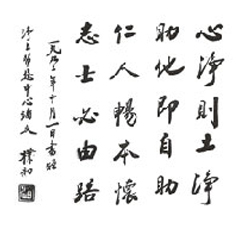 心淨則土淨
助他即自助
仁人暢本懷
志士必由路
一九九二年十月一日書贈
淨土慈慧中心補壁
樸初